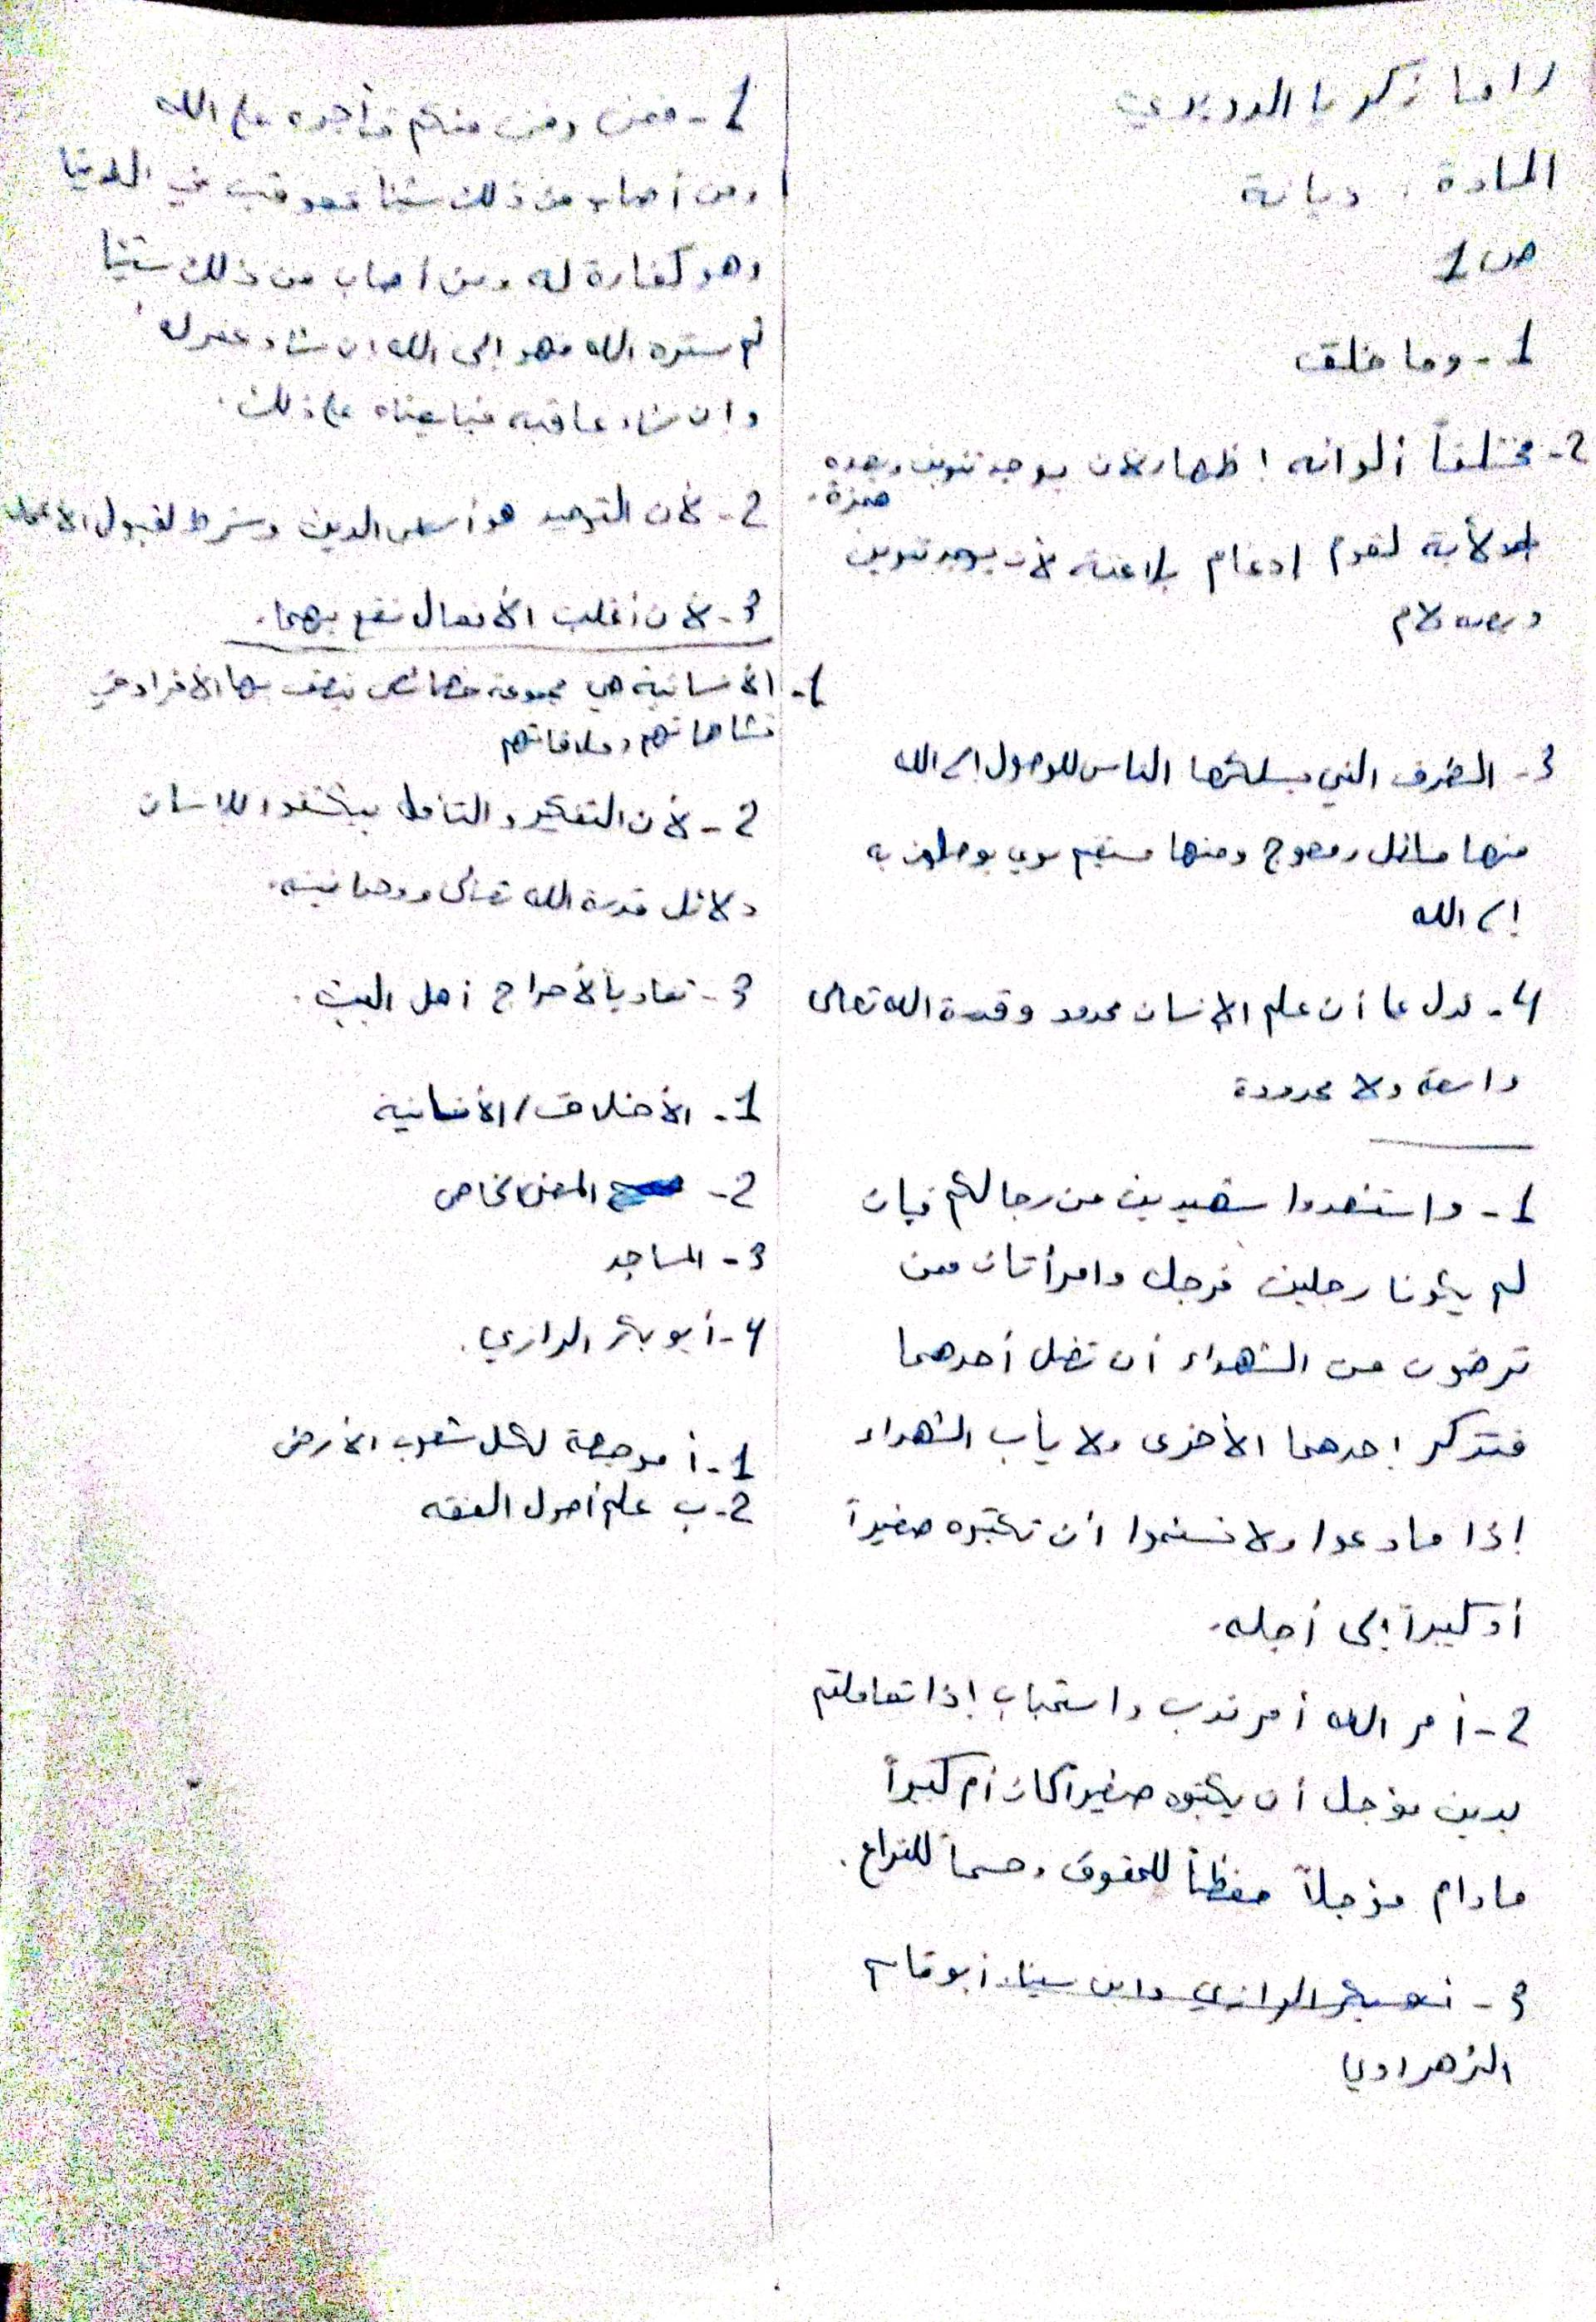 زكريا
المادة: ديانة
ص 1
1- وما خلق
2- مختلفاً ألوانه إظهار لأن يوجد تنوين وبعده
همزة.
لأية لقوم إدغام بلا غنة لأن يوجد تنوين
وبعده لام
3- الطرق التي يسلكها الناس للوصول إلى الله
منها مائل ومعوج ومنها مستقيم سوي يوصلون به
إلى الله
4- تدل على أن علم الإنسان محدود وقدرة الله تعالى
واسعة ولا محدودة
1- واستشهدوا شهيدين من رجالكم فإن
لم يكونا رجلين فرجل وامرأتان ممن
ترضون من الشهداء أن تضل أحدهما
فتذكر إحدهما الأخرى ولا يأب الشهداء
إذا ما دعوا ولا تسئموا أن تكتبوه صغيراً
أو كبيراً إلى أجله.
2- أمر الله أمر ندب واستحباب إذا تعاملتم
بدين مؤجل أن يكتبوه صغيراً كان أم كبيراً
مادام مؤجلاً حفظاً للحقوق وحسماً للنزاع.
3- أبو بكر الرازي وابن سينا، أبو قاسم
الزهراوي
1- فمن وفى منكم فأجره على الله
ومن أصاب من ذلك شيئا فعوقب في الدنيا
وهو كفارة له ومن أصاب من ذلك شيئا
ثم ستره الله فهو إلى الله إن شاء غفر له
وإن شاء عاقبه فبايعناه على ذلك.
2- لأن التوحيد هو أساس الدين وشرط لقبول الأعمال
3- لأن أغلب الأفعال تقع بهما.
1- الإنسانية هي مجموعة خصائص يتصف بها الأفراد في
نشاطاتهم وعلاقاتهم
2- لأن التفكير والتأمل يكشفوا للإنسان
دلائل قدرة الله تعالى ووحدانيته.
3- تفادياً لأحراج أهل البيت.
1- الأخلاق / الأنسانية
2- المعنى الخاص
3- المساجد
4- أبو بكر الرازي.
1- أ موجهة لكل شعوب الأرض
2- ب علم أصول الفقه